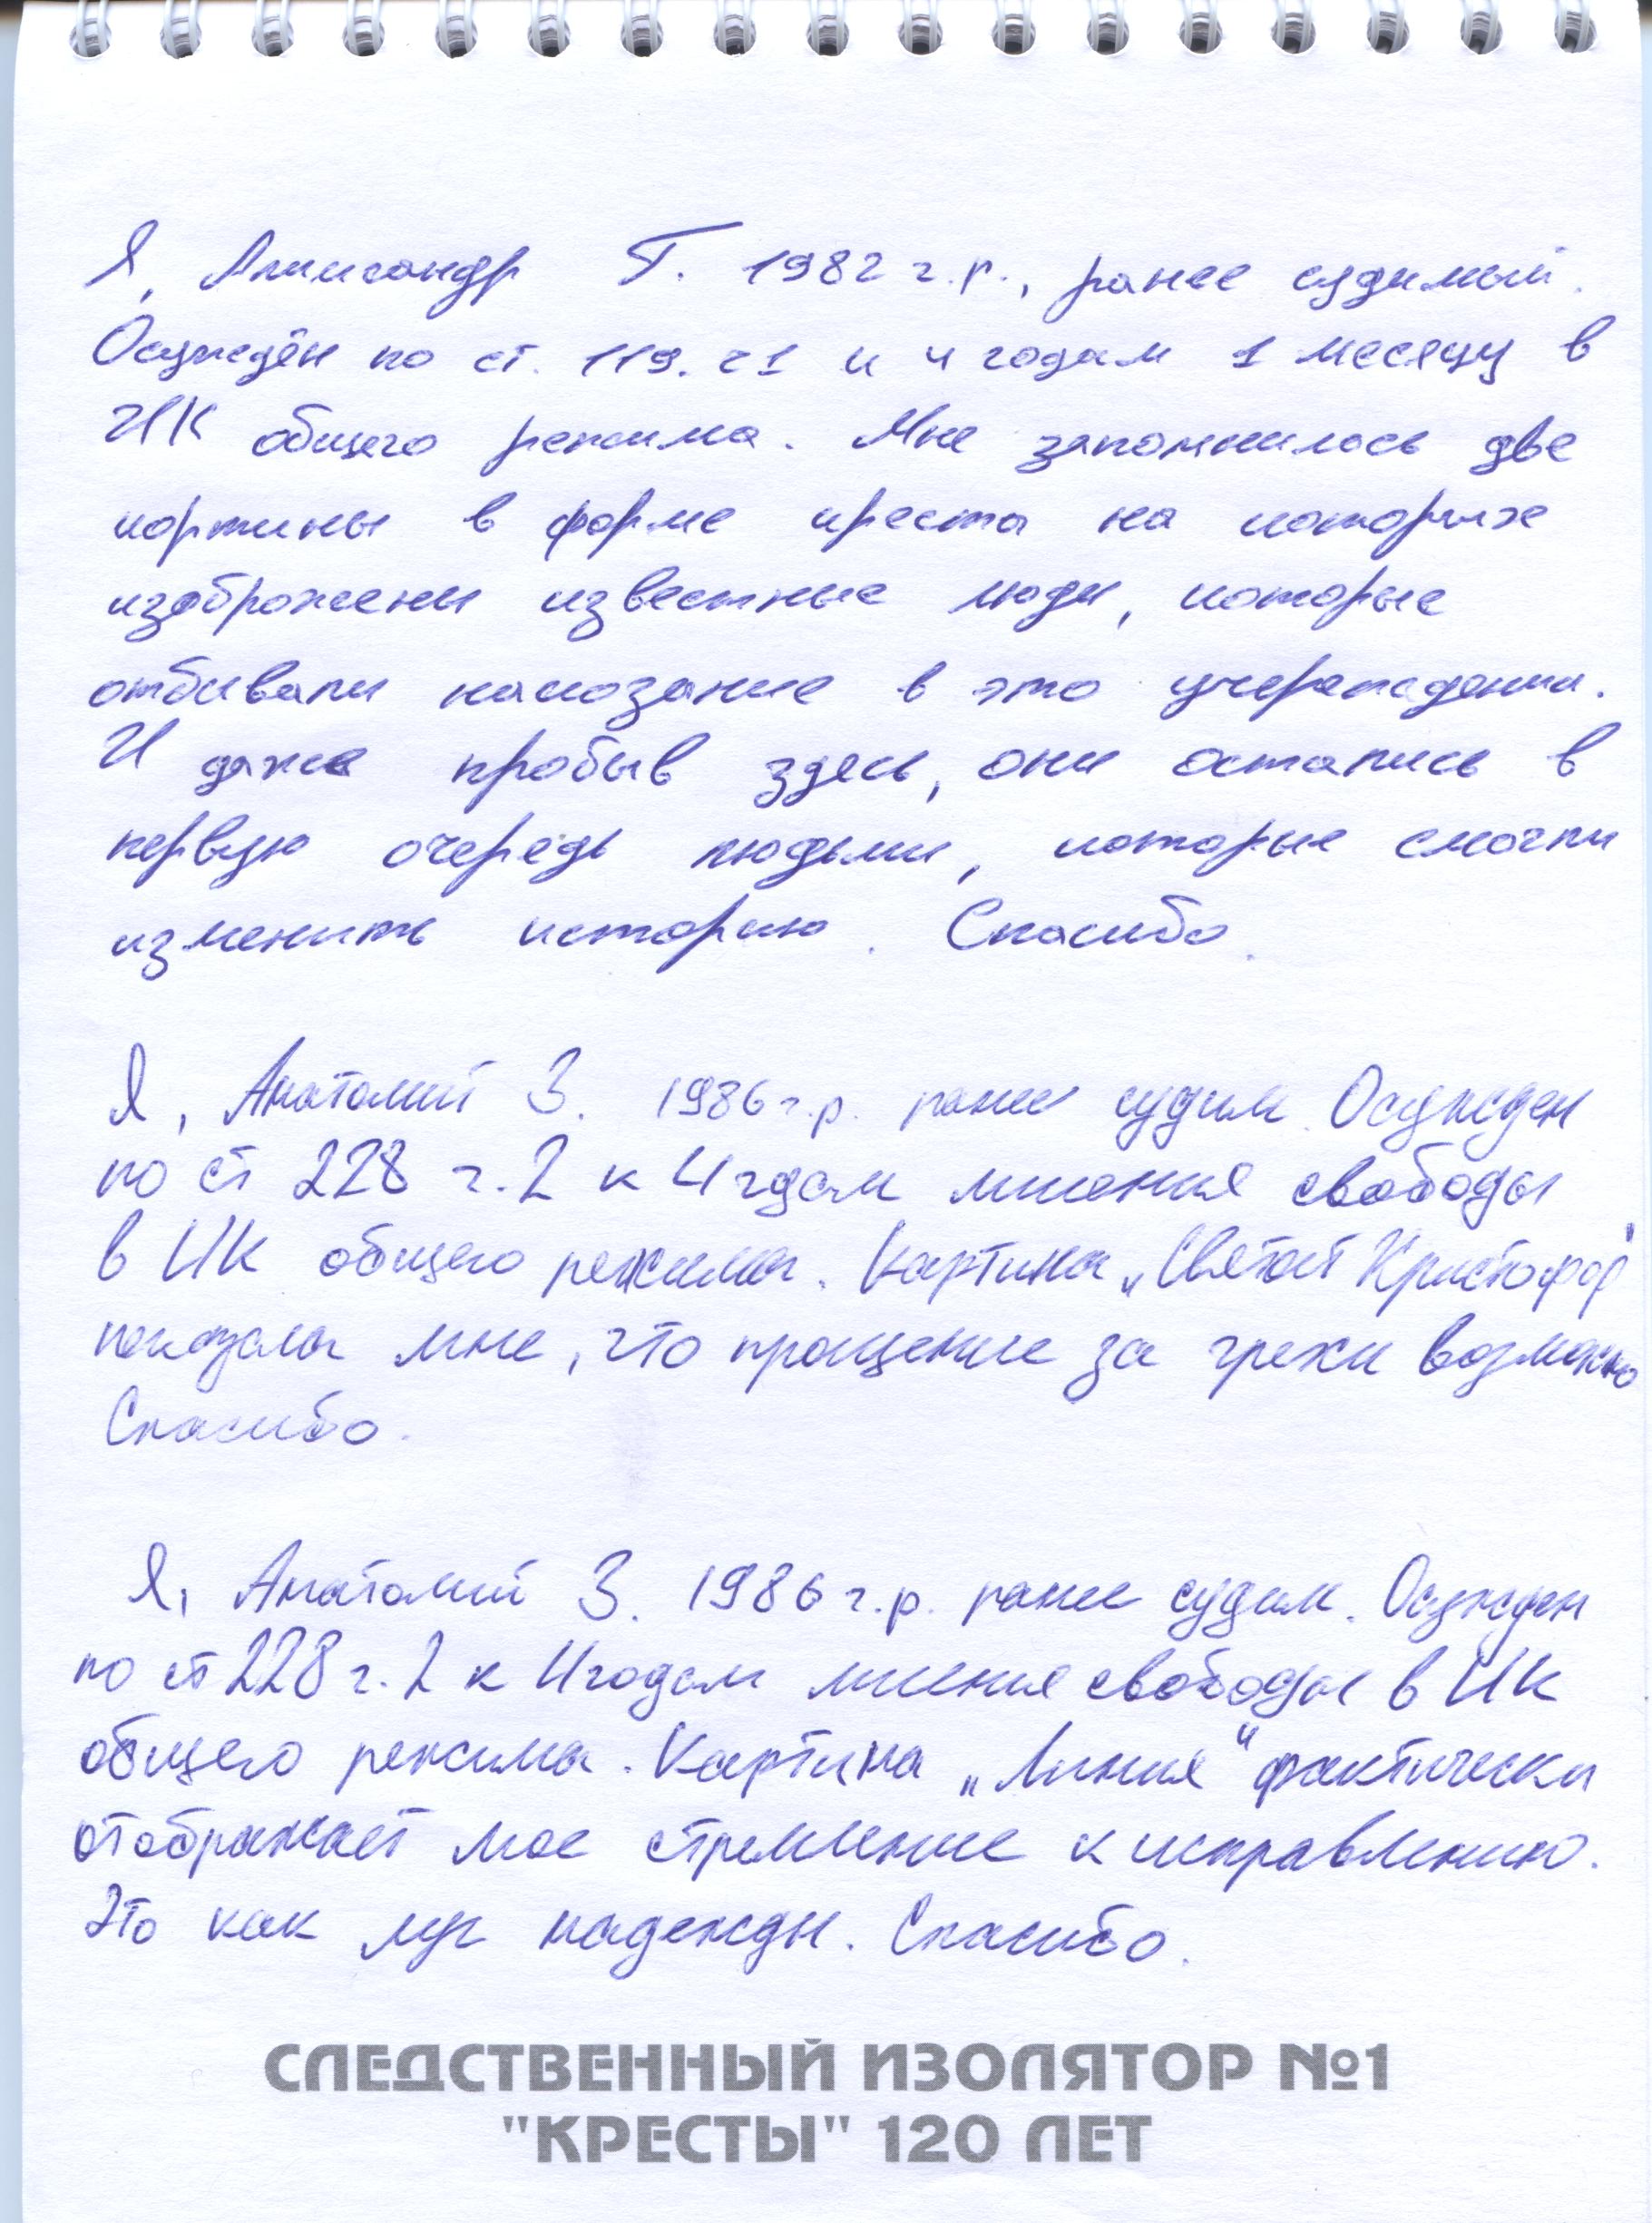 Я, Александр Г. 1982 г.р., ранее судимый.
Осуждён по ст. 119. ч1 к 4 годам 1 месяцу в
ИК общего режима. Мне запомнилось две
картины в форме креста на которых
изображени известные люди, которые
отбивали наказание в это учереждении.
И даже пробыв здесь, они остались в
первую очередь людьми, которые смогли
изменить историю. Спасибо.
Я, Анатолий З. 1986 г.р. ранее судим. Осужден
по ст 228 ч.2 к 4 годам лишения свободы
в ИК общего режима. Картина „Святой Кристофор"
показала мне, что прощение за грехи возможно
Спасибо.
Я, Анатолий З. 1986 г.р. ранее судим. Осужден
по ст 228 ч.2 к 4 годам лишения свободы в ИК
общего режима. Картина „Линия" фактически
отображает мое стремление к исправлению.
Это как луч надежды. Спасибо.
СЛЕДСТВЕННЫЙ ИЗОЛЯТОР №1
"КРЕСТЫ" 120 ЛЕТ